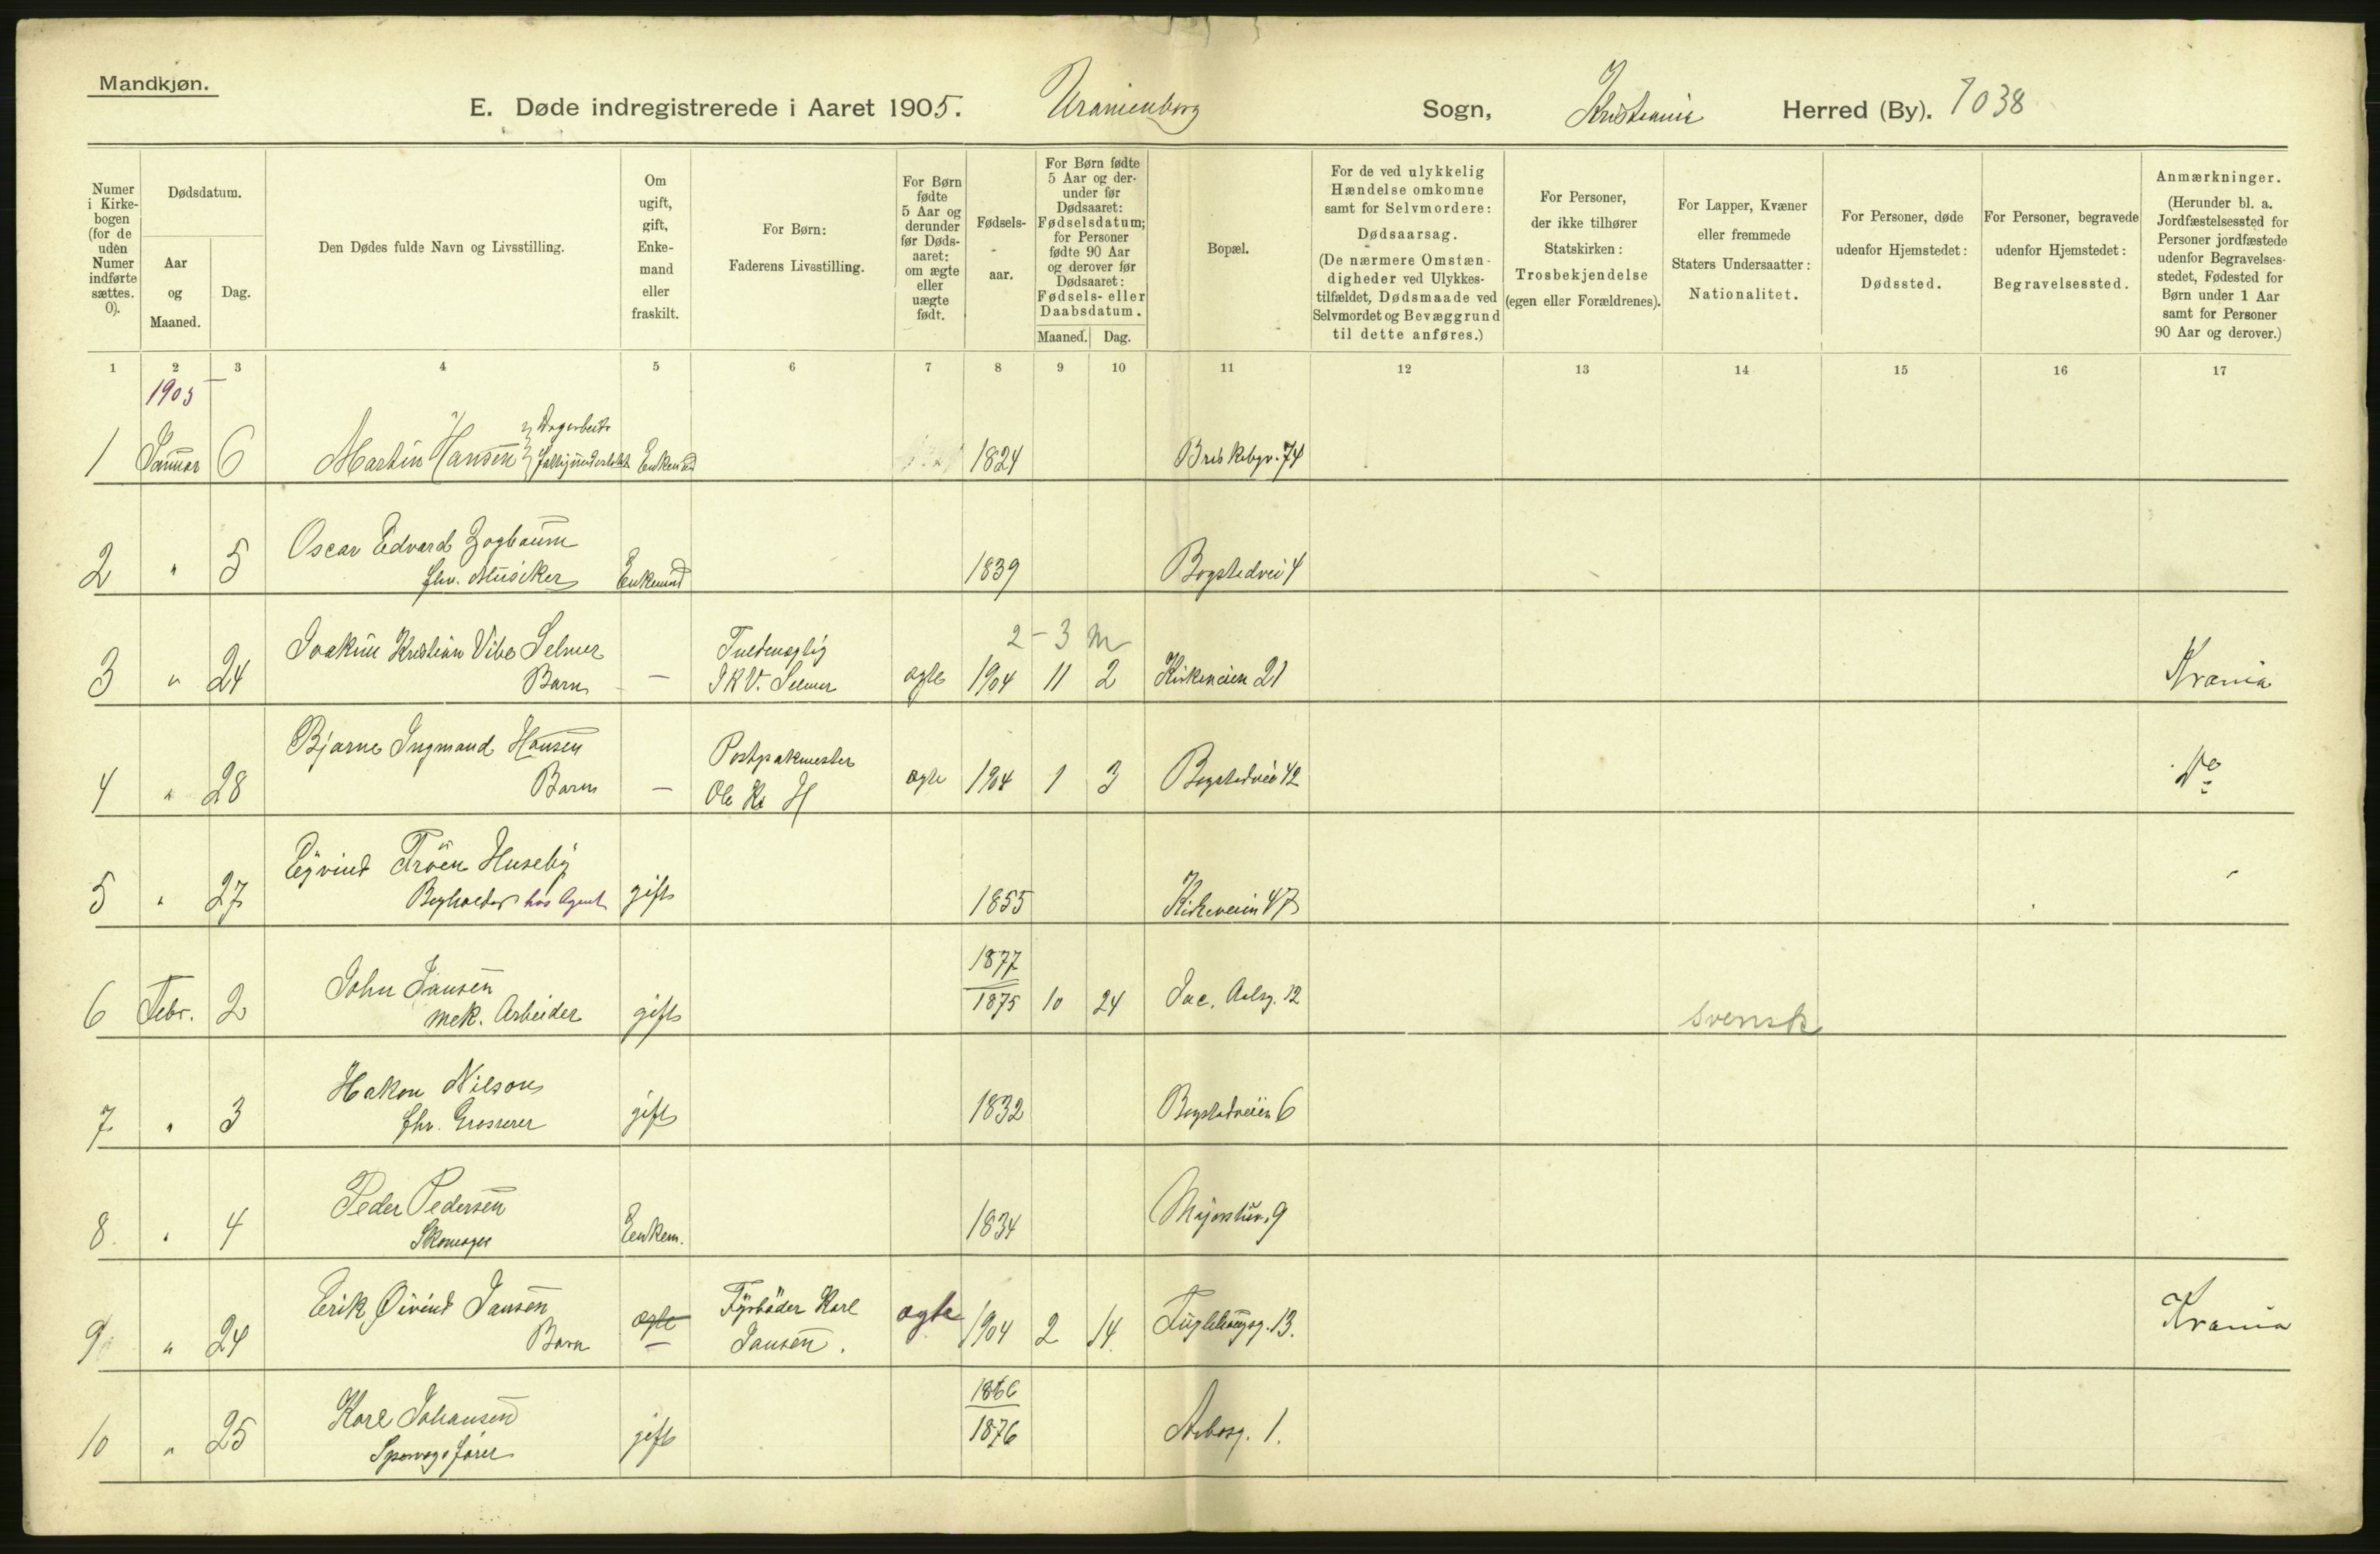 Mandkjøn.
E. Døde indregistrerede i Aaret 1905. Uranienborg Sogn, Kristiania Herred (By). 1038
Numer i Kirkebogen (for de uden Numer indførte sættes. 0).
Dødsdatum.
Aar og Maaned.
Dag.
Den Dødes fulde Navn og Livsstilling.
Om ugift, gift, Enkemand eller fraskilt.
For Børn: Faderens Livsstilling.
For Børn fødte 5 Aar og derunder før Dødsaaret: om ægte eller uægte født.
Fødsels-aar.
For Børn fødte 5 Aar og derunder før Dødsaaret: Fødselsdatum; for Personer fødte 90 Aar og derover før Dødsaaret: Fødsels- eller Daabsdatum.
Maaned. Dag.
Bopæl.
For de ved ulykkelig Hændelse omkomne samt for Selvmordere: Dødsaarsag. (De nærmere Omstændigheder ved Ulykkestilfældet, Dødsmaade ved Selvmordet og Bevæggrund til dette anføres.)
For Personer, der ikke tilhører Statskirken: Trosbekjendelse (egen eller Forældrenes).
For Lapper, Kvæner eller fremmede Staters Undersaatter: Nationalitet.
For Personer, døde udenfor Hjemstedet: Dødssted.
For Personer, begravede udenfor Hjemstedet: Begravelsessted.
Anmærkninger. (Herunder bl. a. Jordfæstelsessted for Personer jordfæstede udenfor Begravelsesstedet, Fødested for Børn under 1 Aar samt for Personer 90 Aar og derover.)
1 2 3 4 5 6 7 8 9 10 11 12 13 14 15 16 17
1905
Dagarbeider
1 Januar 6 Martin Hansen Enkemd 1824 Briskebyv. 74
Oscar Edvard Zogbaum
2 " 5 fhv. Musiker Enkemd 1839 Bogstadvei 4
2 - 3 m
Joakim Kristian Vibe Selmer
3 " 24 Barn — J K V. Selmer ægte 1904 11 2 Kirkeveien 21 Krania
Bjarne Ingmand Hansen Postpakmester
4 " 28 Barn — Ole Kr H ægte 1904 1 3 Bogstadvei 42 Do
Eyvind Tröen Huseby
5 " 27 Bogholder hos Agent gift 1855 Kirkeveien 47
1877
6 Febr. 2 John Jansen 1875 10 24 Jac. Aalsg. 12
mek. Arbeider gift svensk
Hakon Nilson
7 " 3 fhv. Grosserer gift 1832 Bogstadveien 6
Peder Pedersen
8 " 4 Skomager Enkem. 1834 Majorstuv. 9
Erik Øivind Jansen ægte Fyrbøder Karl
9 " 24 Barn — Jansen. ægte 1904 2 14 Fuglehaugg. 13. Krania
1866
Karl Johansen 1876
10 " 25 Sporvogsfører gift Arbosg. 1.